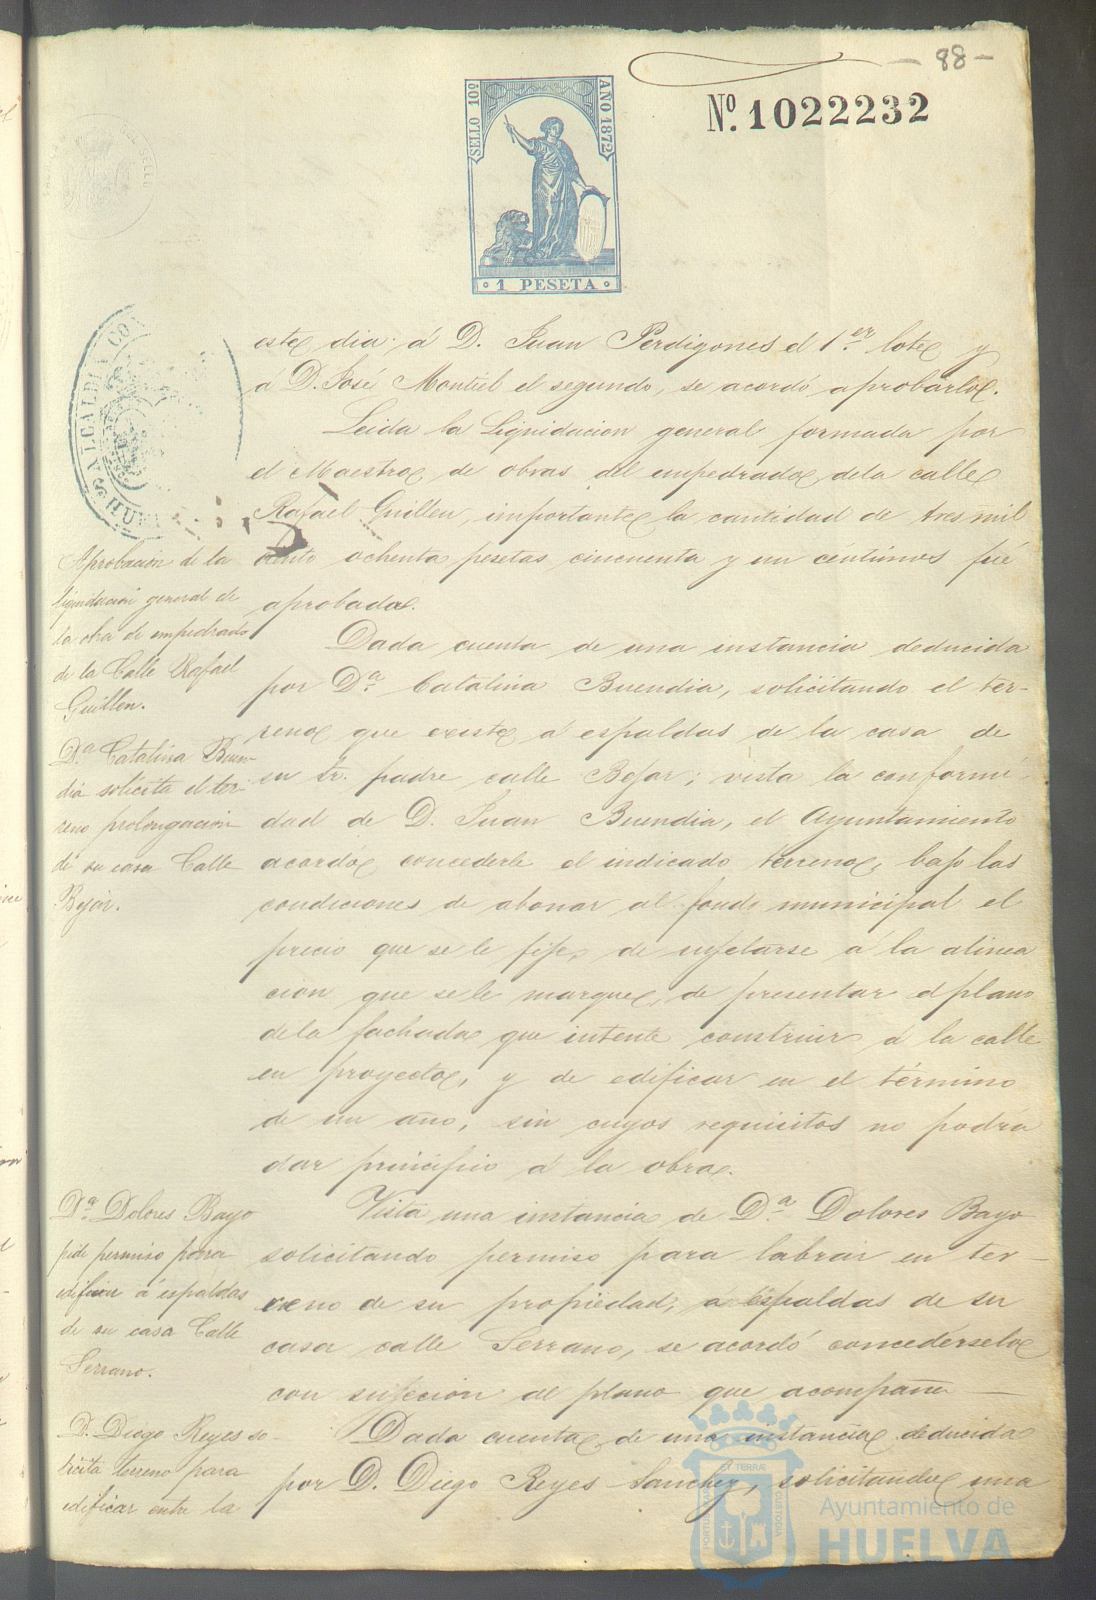 - 88 -
Nº. 1022232
SELLO 10º
AÑO 1872
· 1 PESETA ·
ALCALDIA CO
HU
este dia á D. Juan Perdigones el 1.er lote y
á D. José Montiel el segundo, se acordó aprobarlo.
Leida la Liquidacion general formada por
el Maestro de obras del empedrado dela calle
Rafael Guillen, importante la cantidad de tres mil
ciento ochenta pesetas cincuenta y un céntimos fué
aprobada.
Aprobacion de la
liquidacion general de
la obra de empedrado
de la Calle Rafael
Guillen.
Dada cuenta de una instancia deducida
por D.ª Catalina Buendia, solicitando el ter-
reno que existe á espaldas de la casa de
su Sr. padre calle Bejar; vista la conformi-
dad de D. Juan Buendia, el Ayuntamiento
acordó concederle el indicado terreno, bajo las
condiciones de abonar al fondo municipal el
precio que se le fije, de sujetarse á la alinea
cion que se le marque, de presentar el plano
dela fachada que intente construir á la calle
en proyecto, y de edificar en el término
de un año, sin cuyos requisitos no podrá
dar principio á la obra.
D.ª Catalina Buen-
dia solicita el ter-
reno prolongacion
de su casa Calle
Bejar.
Vista una instancia de D.ª Dolores Bayo
solicitando permiso para labrar en ter-
reno de su propiedad, a espaldas de su
casa calle Serrano, se acordó concedérselo
con sujecion al plano que acompaña
D.ª Dolores Bayo
pide permiso para
edificar á espaldas
de su casa Calle
Serrano.
Dada cuenta de una instancia deducida
por D. Diego Reyes Sanchez, solicitando una
D. Diego Reyes so-
licita terreno para
edificar entre la
PORTUS MARIS
ET TERRAE
CUSTODIA
Ayuntamiento de
HUELVA